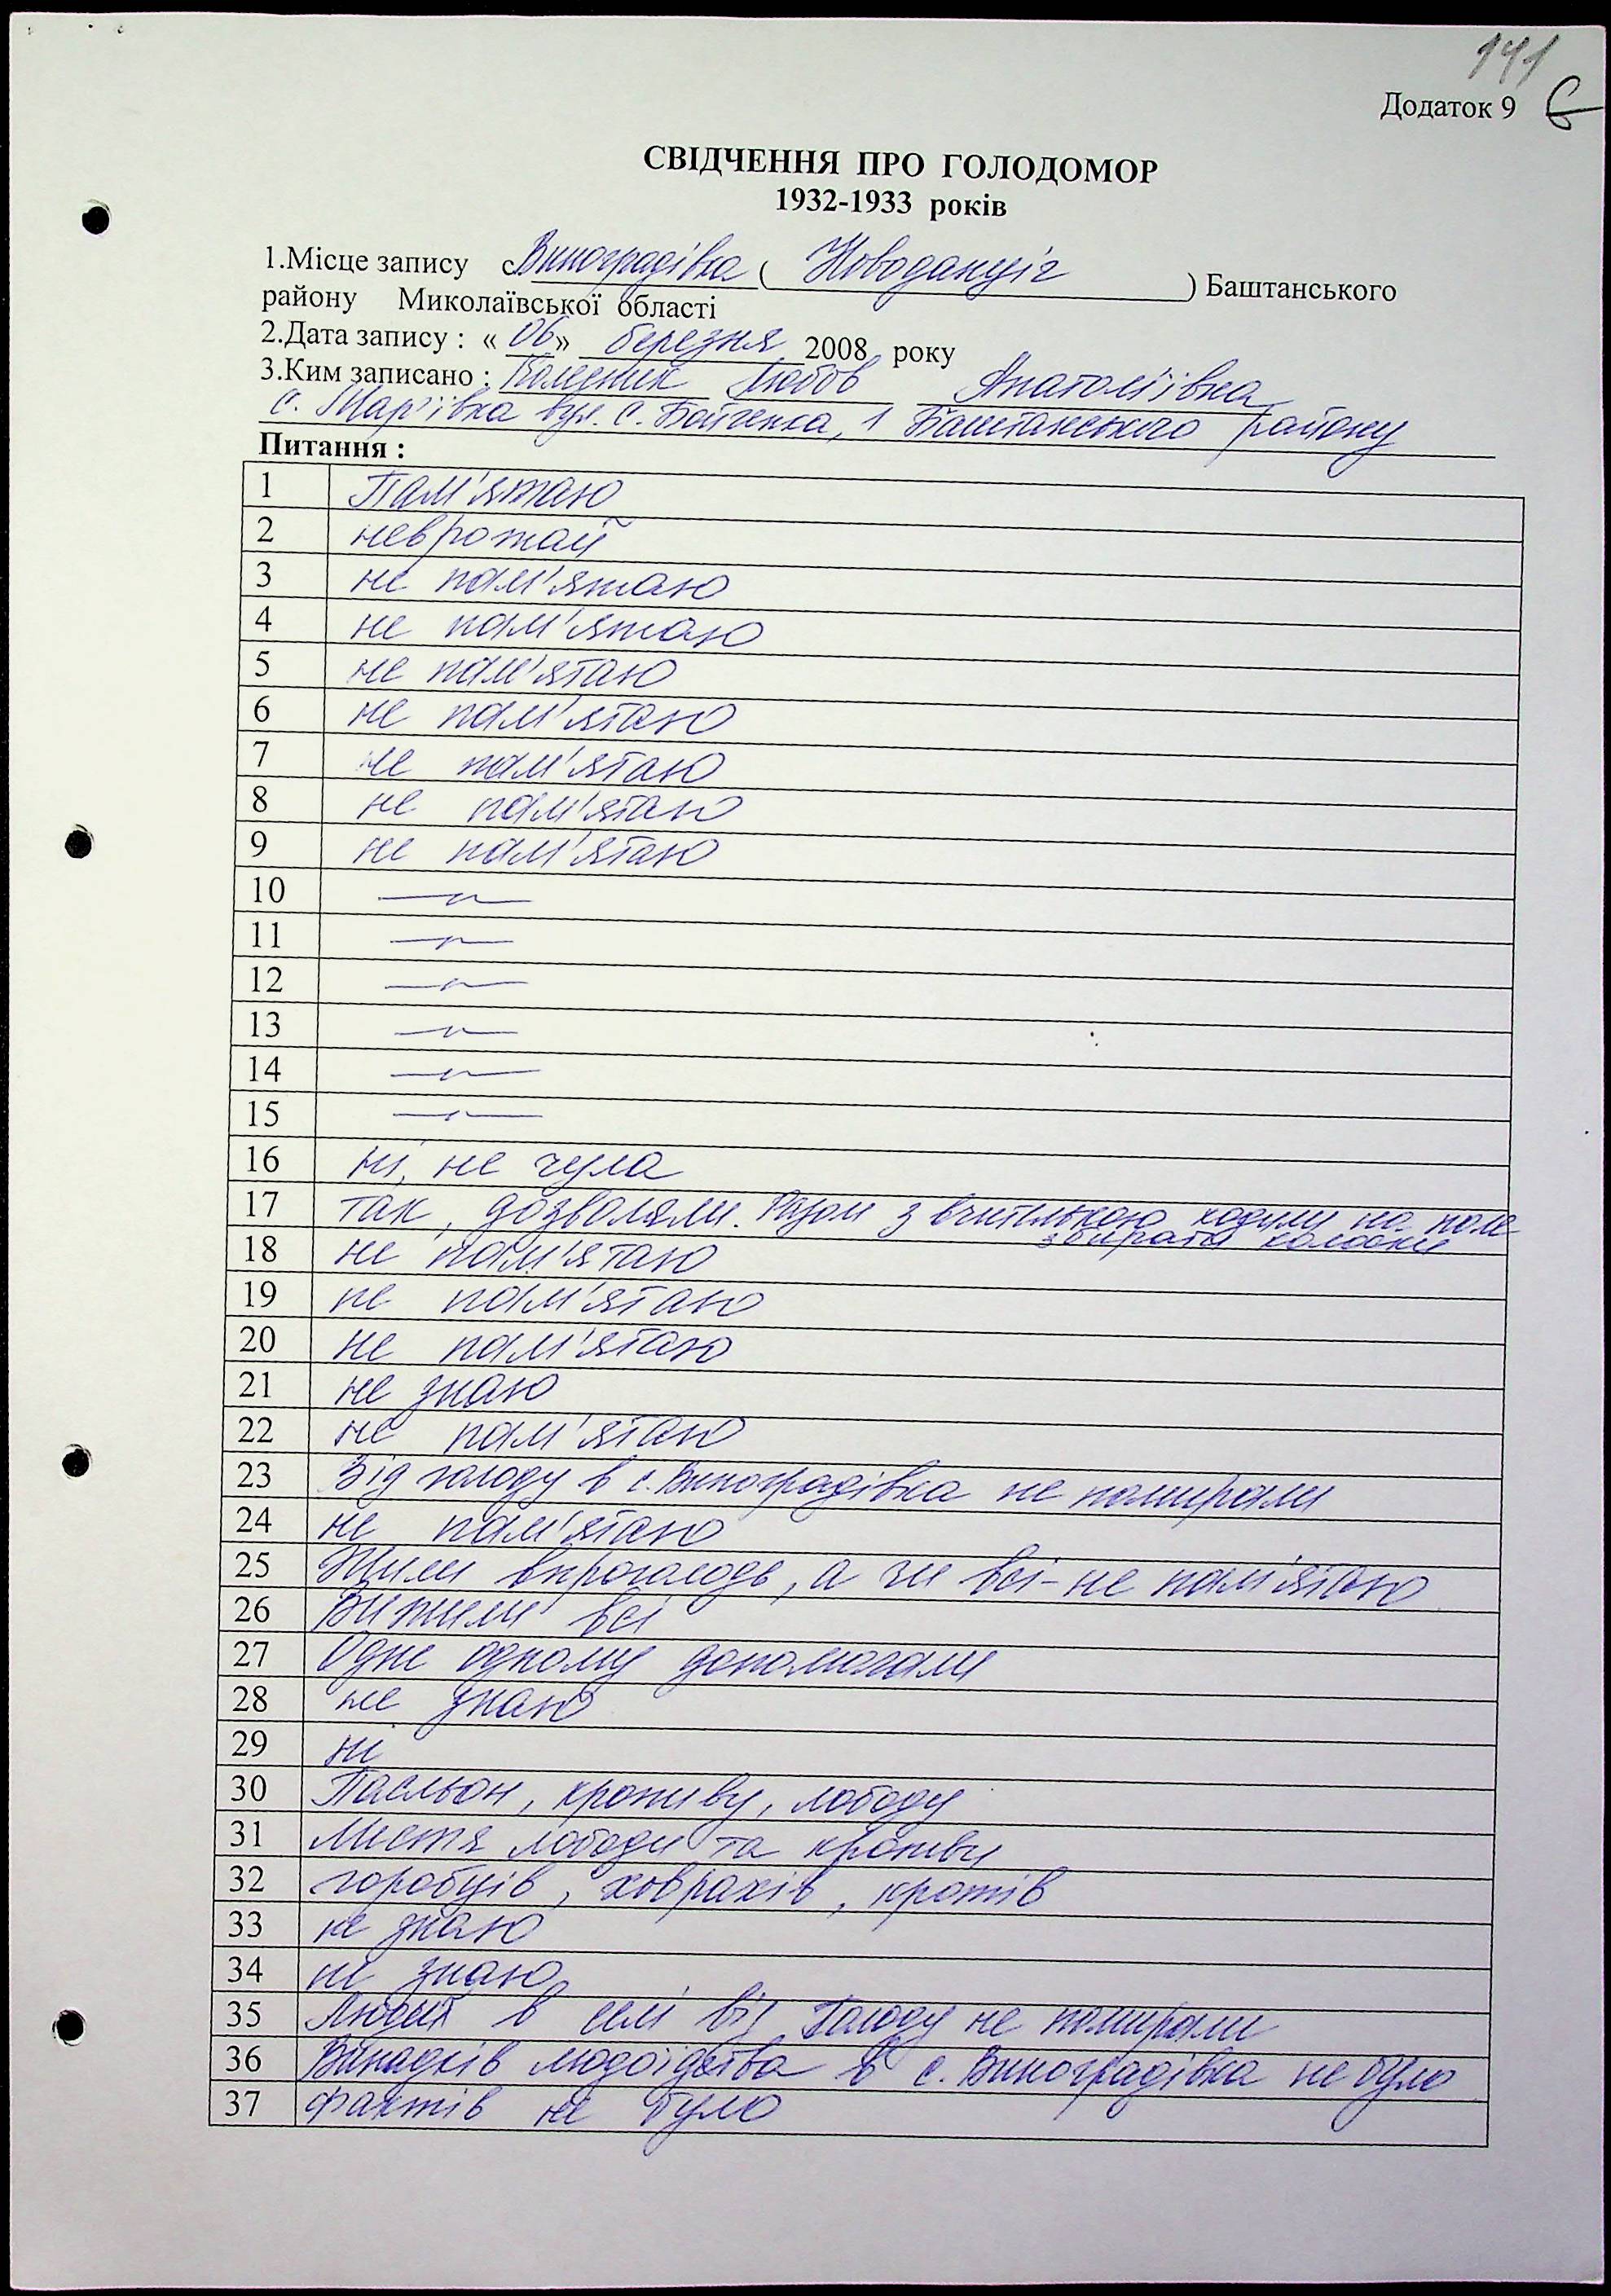 141
Додаток 9 6
СВІДЧЕННЯ ПРО ГОЛОДОМОР
1932-1933 років
1.Місце запису с.Виноградівка ( Новоданціг ) Баштанського
району Миколаївської області
2.Дата запису : « 06 » березня 2008 року
3.Ким записано : Любов Анатоліївна
с. Мар'ївка вул. С. Бойченка, 1 Баштанського району
Питання :
1 Пам'ятаю
2 неврожай
3 не пам'ятаю
4 не пам'ятаю
5 не пам'ятаю
6 не пам'ятаю
7 не пам'ятаю
8 не пам'ятаю
9 не пам'ятаю
10 —"—
11 —"—
12 —"—
13 —"—
14 —"—
15 —"—
16 ні, не чула
17 так, дозволяли. Разом з вчителькою ходили на поле
збирати колоски
18 не пам'ятаю
19 не пам'ятаю
20 не пам'ятаю
21 не знаю
22 не пам'ятаю
23 Від голоду в с. Виноградівка не помирали
24 не пам'ятаю
25 Жили впроголодь, а чи всі - не пам'ятаю
26 Вижили всі
27 Одне одному допомагали
28 не знаю
29 ні
30 Пасльон, кропиву, лободу
31 Листя лободи та кропиви
32 горобців, ховрахів, кротів
33 не знаю
34 не знаю
35 Людей в селі від голоду не помирали
36 Випадків людоїдства в с. Виноградівка не було
37 фактів не було